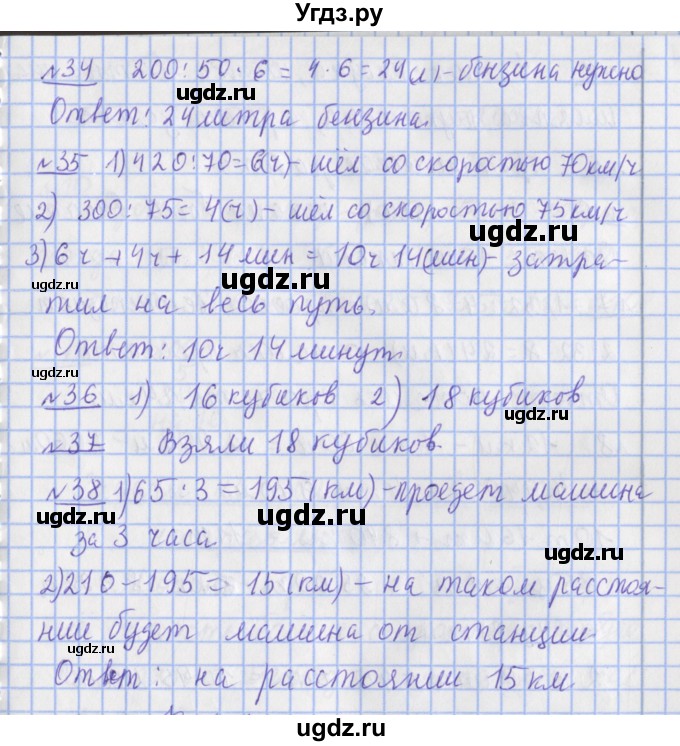 Угдз.ру
№34 200:50·6=4·6=24(л)-бензина нужно
ugdz.ru ugdz.ru
Ответ: 24 литра бензина.
№35 1) 420:70=6(ч)- шёл со скоростью 70км/ч
2) 300:75=4(ч)- шёл со скоростью 75км/ч
ugdz.ru ugdz.ru
3) 6ч+4ч+14мин=10ч 14(мин)- затра-
ugdz.ru
тил на весь путь.
Ответ: 10ч 14минут.
ugdz.ru
№36 1) 16 кубиков 2) 18 кубиков
ugdz.ru
№37 Взяли 18 кубиков.
№38 1) 65·3=195(км)-проедет машина
ugdz.ru ugdz.ru ugdz.ru
за 3 часа
2) 210-195=15(км)- на таком расстоя-
нии будет машина от станции
ugdz.ru ugdz.ru
Ответ: на расстоянии 15км
ugdz.ru
ugdz.ru